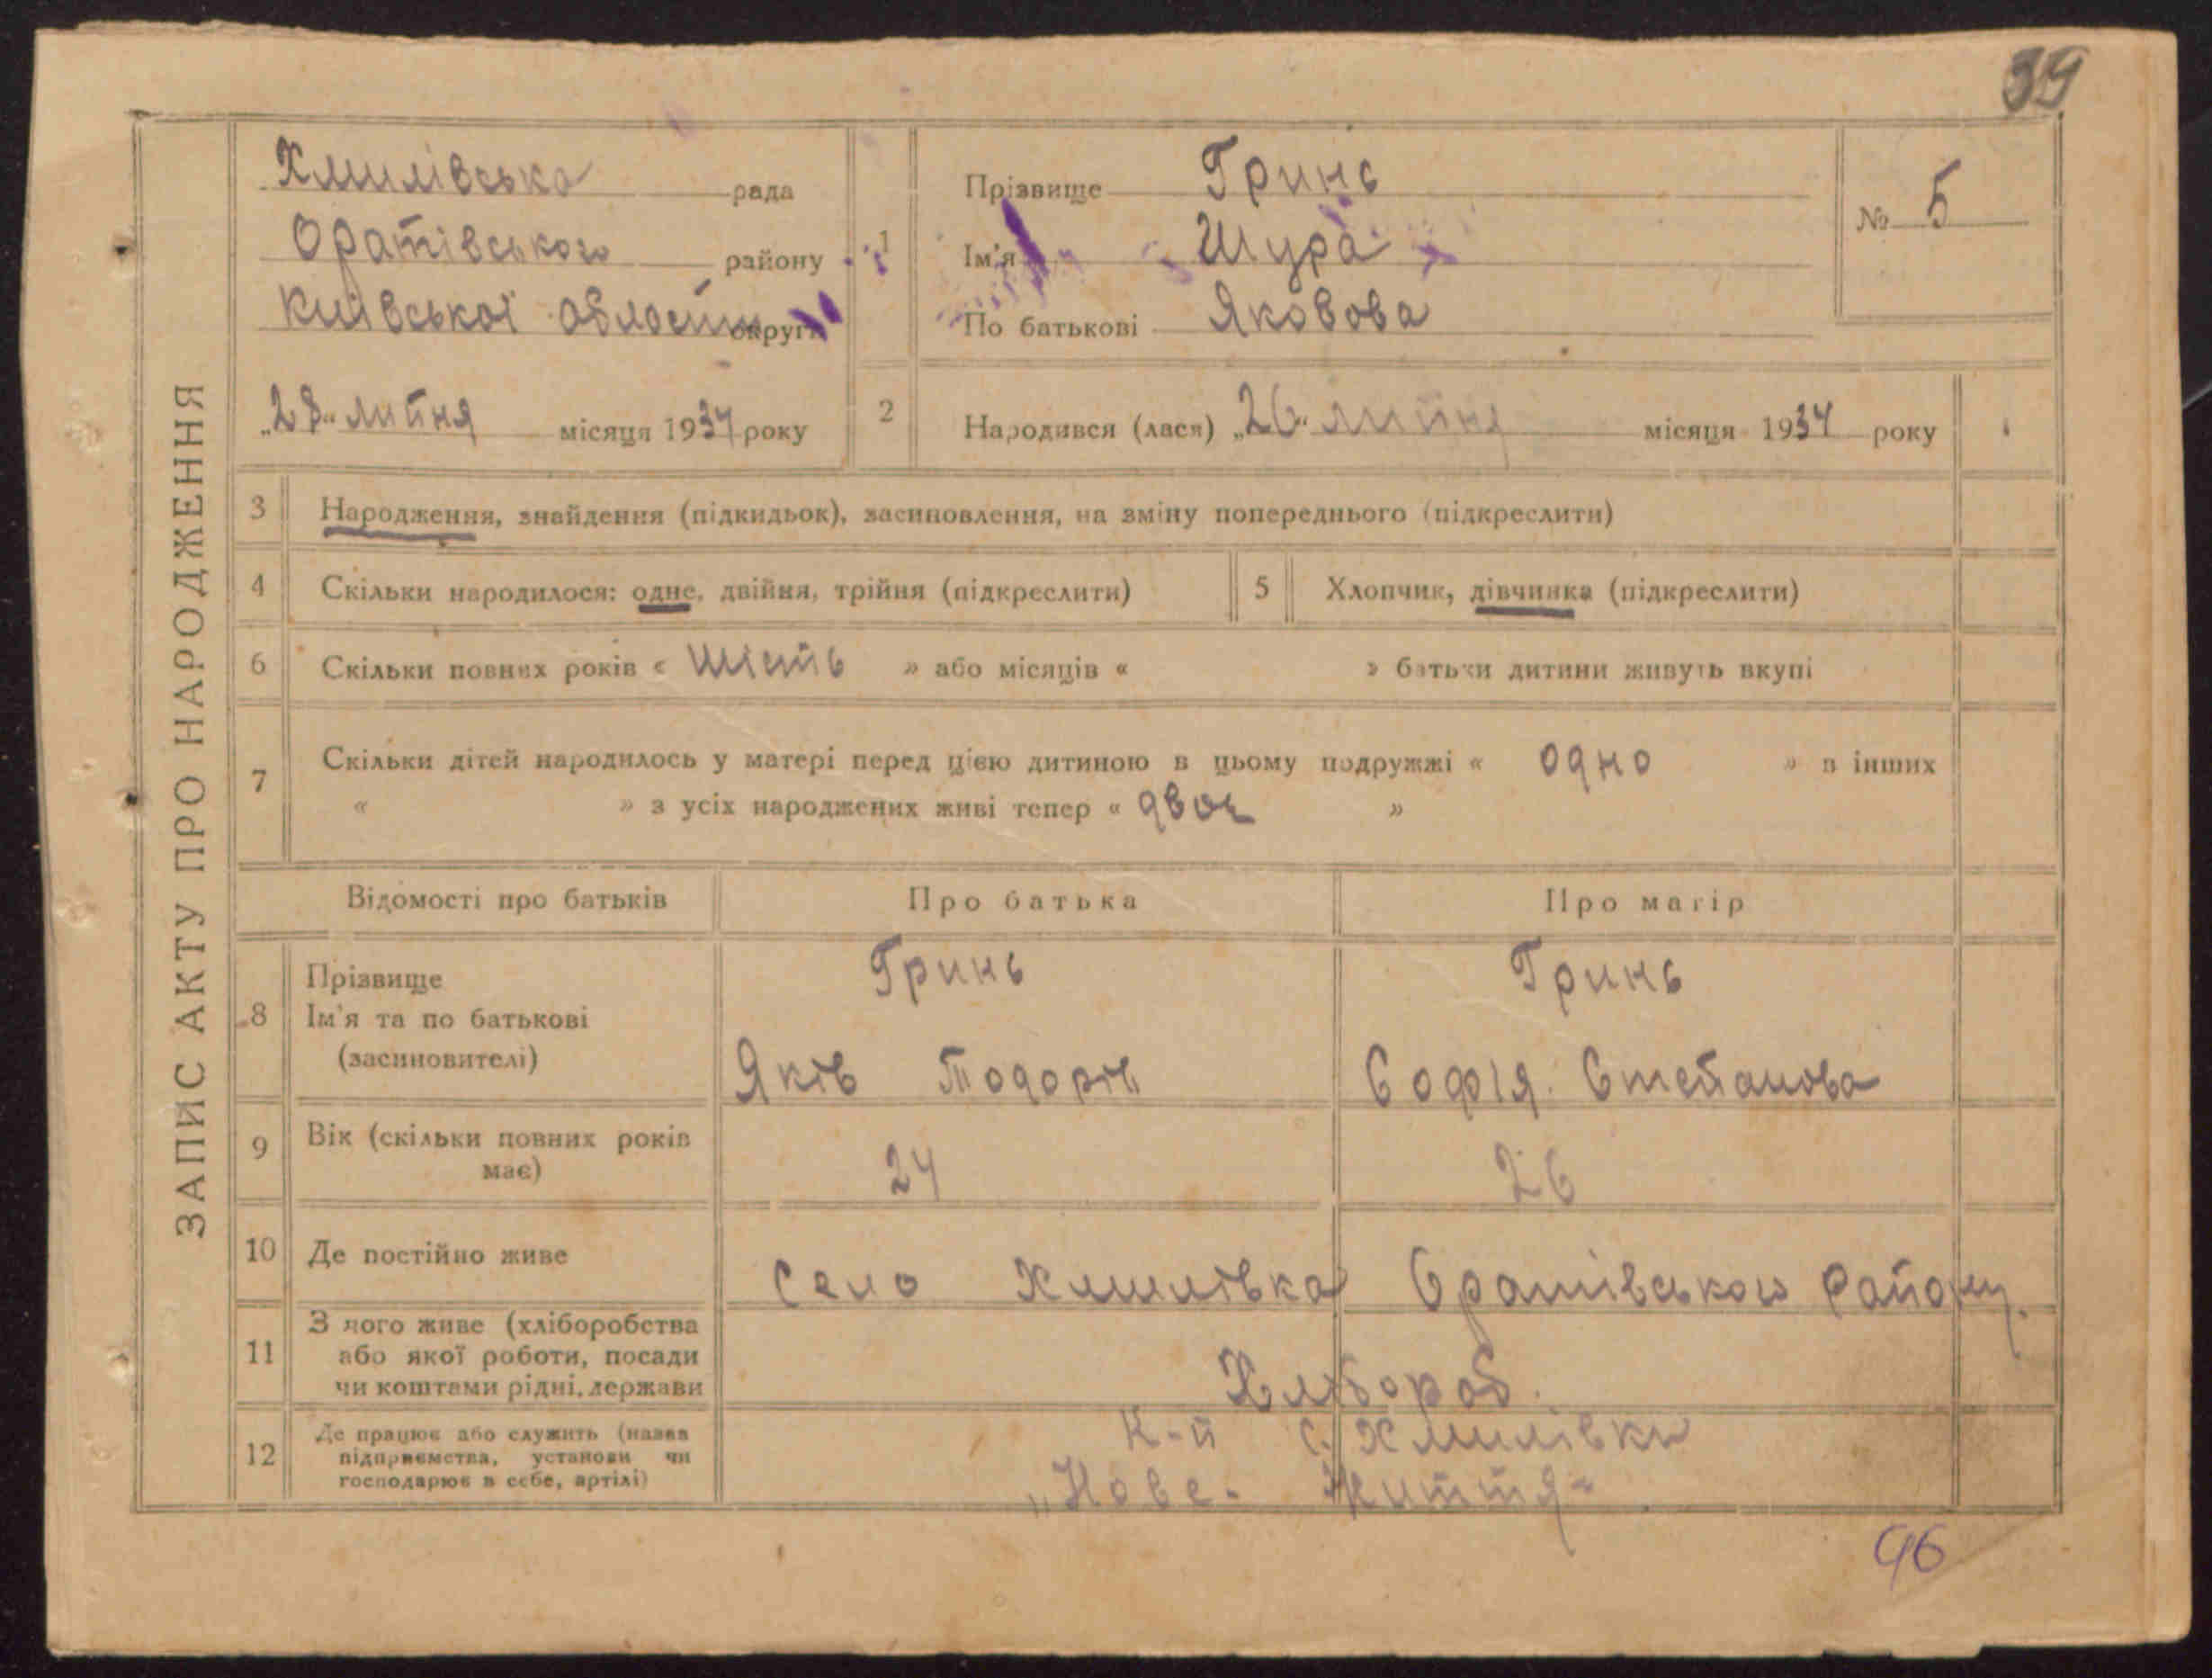 39
ЗАПИС АКТУ ПРО НАРОДЖЕННЯ
Хмилівська рада
Оратівського району
Київської області округи
„28" липня місяця 1934 року
1
Прізвище Гринь
Ім'я Шура
По батькові Яковова
№ 5
2
Народився (лася) „26" липня місяця 1934 року
3 Народження, знайдення (підкидьок), засиновлення, на зміну попереднього (підкреслити)
4 Скільки народилося: одне, двійня, трійня (підкреслити)
5 Хлопчик, дівчинка (підкреслити)
6 Скільки повних років « Шість » або місяців « » батьки дитини живуть вкупі
7 Скільки дітей народилось у матері перед цією дитиною в цьому подружжі « одно » в інших
« » з усіх народжених живі тепер « двоє »
Відомості про батьків Про батька Про матір
8 Прізвище Гринь Гринь
Ім'я та по батькові
(засиновителі) Яків Тодорів Софія Степанова
9 Вік (скільки повних років має) 24 26
10 Де постійно живе село Хмилівка Оратівського району.
11 З чого живе (хліборобства
або якої роботи, посади
чи коштами рідні, держави Хлібороб.
12 Де працює або служить (назва
підприємства, установи чи
господарює в себе, артілі)
К-п с. Хмилівки
„Нове-Життя"
96